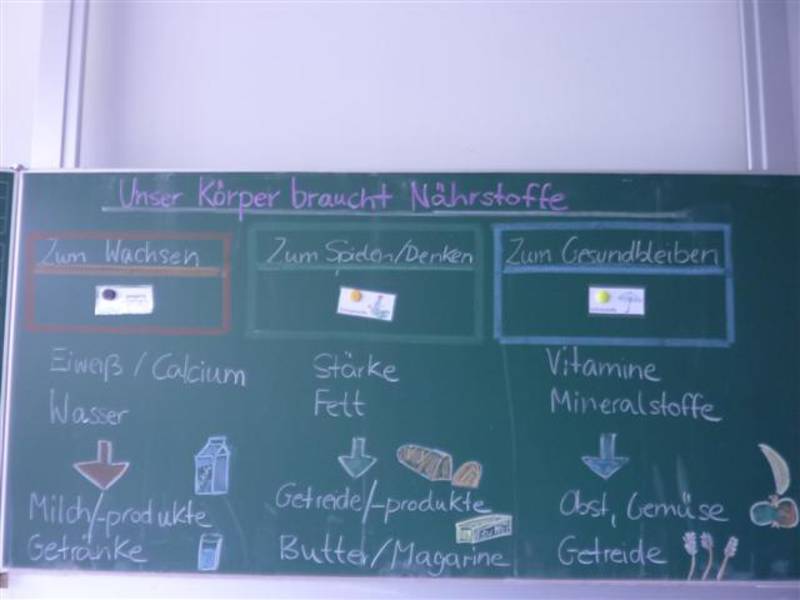 Unser Körper braucht Nährstoffe
Zum Wachsen
Eiweiß / Calcium
Wasser
Milch/-produkte
Getränke
Zum Spielen/Denken
Stärke
Fett
Getreide/-produkte
Butter/Magarine
Zum Gesundbleiben
Vitamine
Mineralstoffe
Obst, Gemüse
Getreide